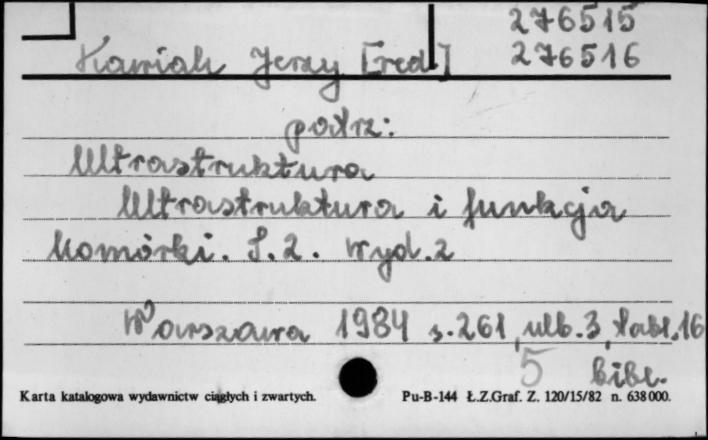 276515
Kawiak Jerzy [red.] 276516
patrz:
Ultrastruktura
Ultrastruktura i funkcja
komórki. T.2. Wyd.2
Warszawa 1984 s.261, ulb.3, tabl.16
5 bibl.
Karta katalogowa wydawnictw ciągłych i zwartych. Pu-B-144 Ł.Z.Graf. Z. 120/15/82 n. 638000.